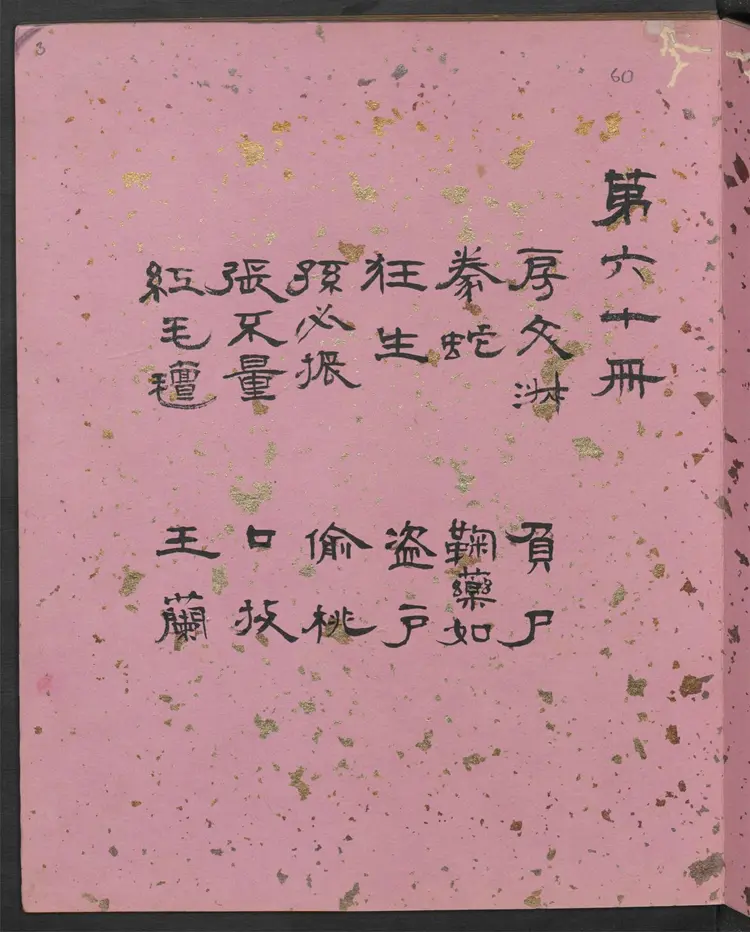 3
60
第六十冊
房文淑 負尸
豢蛇 鞠藥如
狂生 盜戶
孫必振 偷桃
張不量 口技
紅毛氊 王蘭